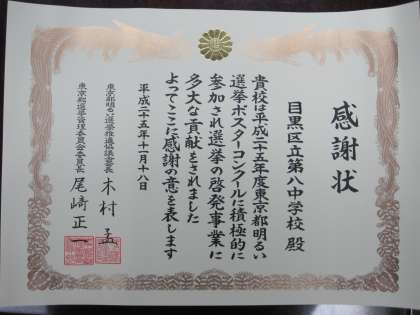 感謝状
目黒区立第八中学校 殿
貴校は平成二十五年度東京都明るい
選挙ポスターコンクールに積極的に
参加され選挙の啓発事業に
多大な貢献をされました
よってここに感謝の意を表します
平成二十五年十一月十八日
東京都明るい選挙推進協議会会長 木村
東京都選挙管理委員会委員長 尾崎正一